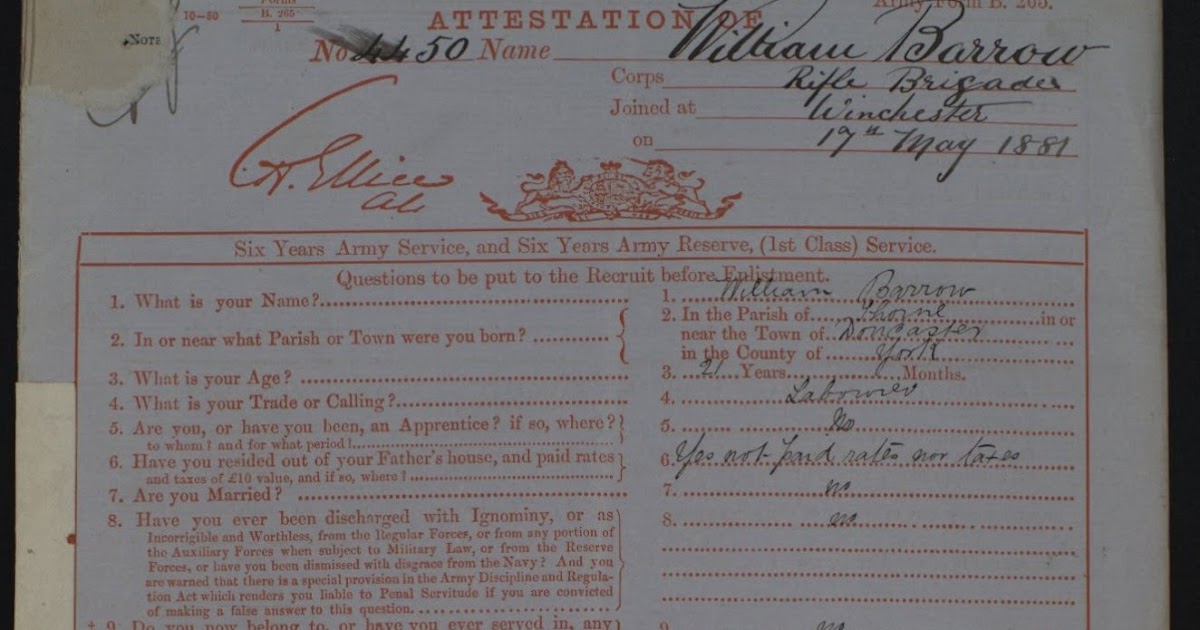 Forms
B. 265
1
10—80
Army Form B. 265.
Note
ATTESTATION OF
No 4450 Name William Barrow
Corps Rifle Brigade
Joined at Winchester
on 17th May 1881
Six Years Army Service, and Six Years Army Reserve, (1st Class) Service.
Questions to be put to the Recruit before Enlistment.
1. What is your Name? 1. William Barrow
2. In or near what Parish or Town were you born? 2. In the Parish of Thorne in or
near the Town of Doncaster
in the County of York
3. What is your Age? 3. 21 Years Months.
4. What is your Trade or Calling? 4. Labourer
5. Are you, or have you been, an Apprentice? if so, where? 5. No
to whom? and for what period?
6. Have you resided out of your Father's house, and paid rates 6. Yes not paid rates nor taxes
and taxes of £10 value, and if so, where?
7. Are you Married? 7. no
8. Have you ever been discharged with Ignominy, or as 8. no
Incorrigible and Worthless, from the Regular Forces, or from any portion of
the Auxiliary Forces when subject to Military Law, or from the Reserve
Forces, or have you been dismissed with disgrace from the Navy? And you
are warned that there is a special provision in the Army Discipline and Regula-
tion Act which renders you liable to Penal Servitude if you are convicted
of making a false answer to this question.
† 9. Do you now belong to, or have you ever served in, any 9. no